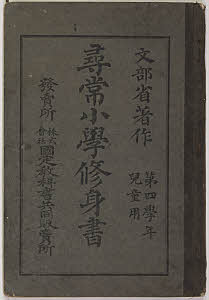 文部省著作
第四學年
兒童用
尋常小學修身書
發賣所
株式
會社
國定敎科書共同販賣所